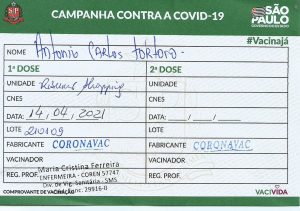 CAMPANHA CONTRA A COVID-19
SÃO PAULO
GOVERNO DO ESTADO
#Vacinajá
NOME Antonio Carlos Tortoro
1ª DOSE 2ª DOSE
UNIDADE Ribeirão Shopping UNIDADE
CNES CNES
DATA: 14, 04, 2021 DATA: __/__/__
LOTE 210109 LOTE
FABRICANTE CORONAVAC FABRICANTE CORONAVAC
VACINADOR VACINADOR
Maria Cristina Ferreira
REG. PROF. ENFERMEIRA - COREN 57747 REG. PROF.
Div. de Vig. Sanitária - SMS
COMPROVANTE DE VACINAÇÃO 29916-0
VACIVIDA